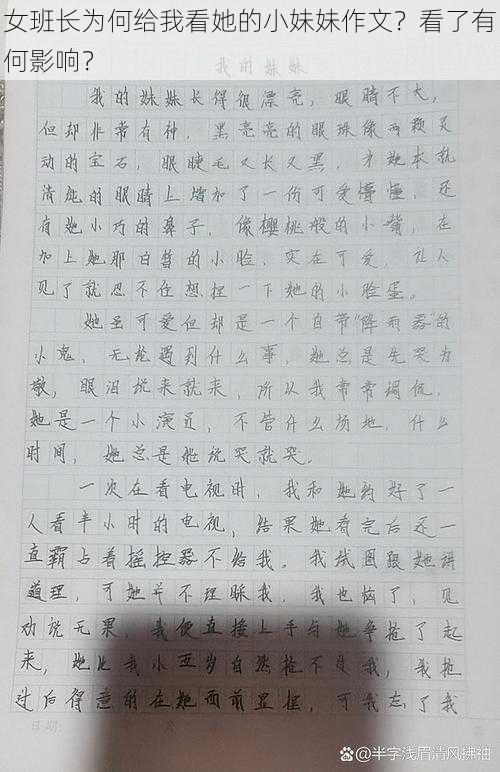 女班长为何给我看她的小妹妹作文？看了有
何影响？
我的妹妹
我的妹妹长得很漂亮，眼睛不大，
但却非常有神，黑亮亮的眼珠像两颗灵
动的宝石，眼睫毛又长又黑，为她本就
清纯的眼睛上增加了一份可爱懵懂，还
有她小巧的鼻子，像樱桃般的小嘴，在
加上她那白皙的小脸，实在可爱，让人
见了就忍不住想捏一下她的小脸蛋。
她虽可爱但却是一个自带“降雨器”的
小鬼，无论遇到什么事，她总是先哭为
敬，眼泪说来就来，所以我常常调侃，
她是一个小演员，不管什么场地，什么
时间，她总是她说哭就哭。
一次在看电视时，我和她约好了一
人看半小时的电视，结果她看完后还一
直霸占着摇控器不给我。我试图跟她讲
道理，可她并不理睬我，我也恼了，见
劝说无果，我便直接上手与她争抢了起
来，她比我小五岁自然抢不过我，我抢
过后得意的在她面前显摆，可我忘了我
日期：
@半字浅眉清风拂袖